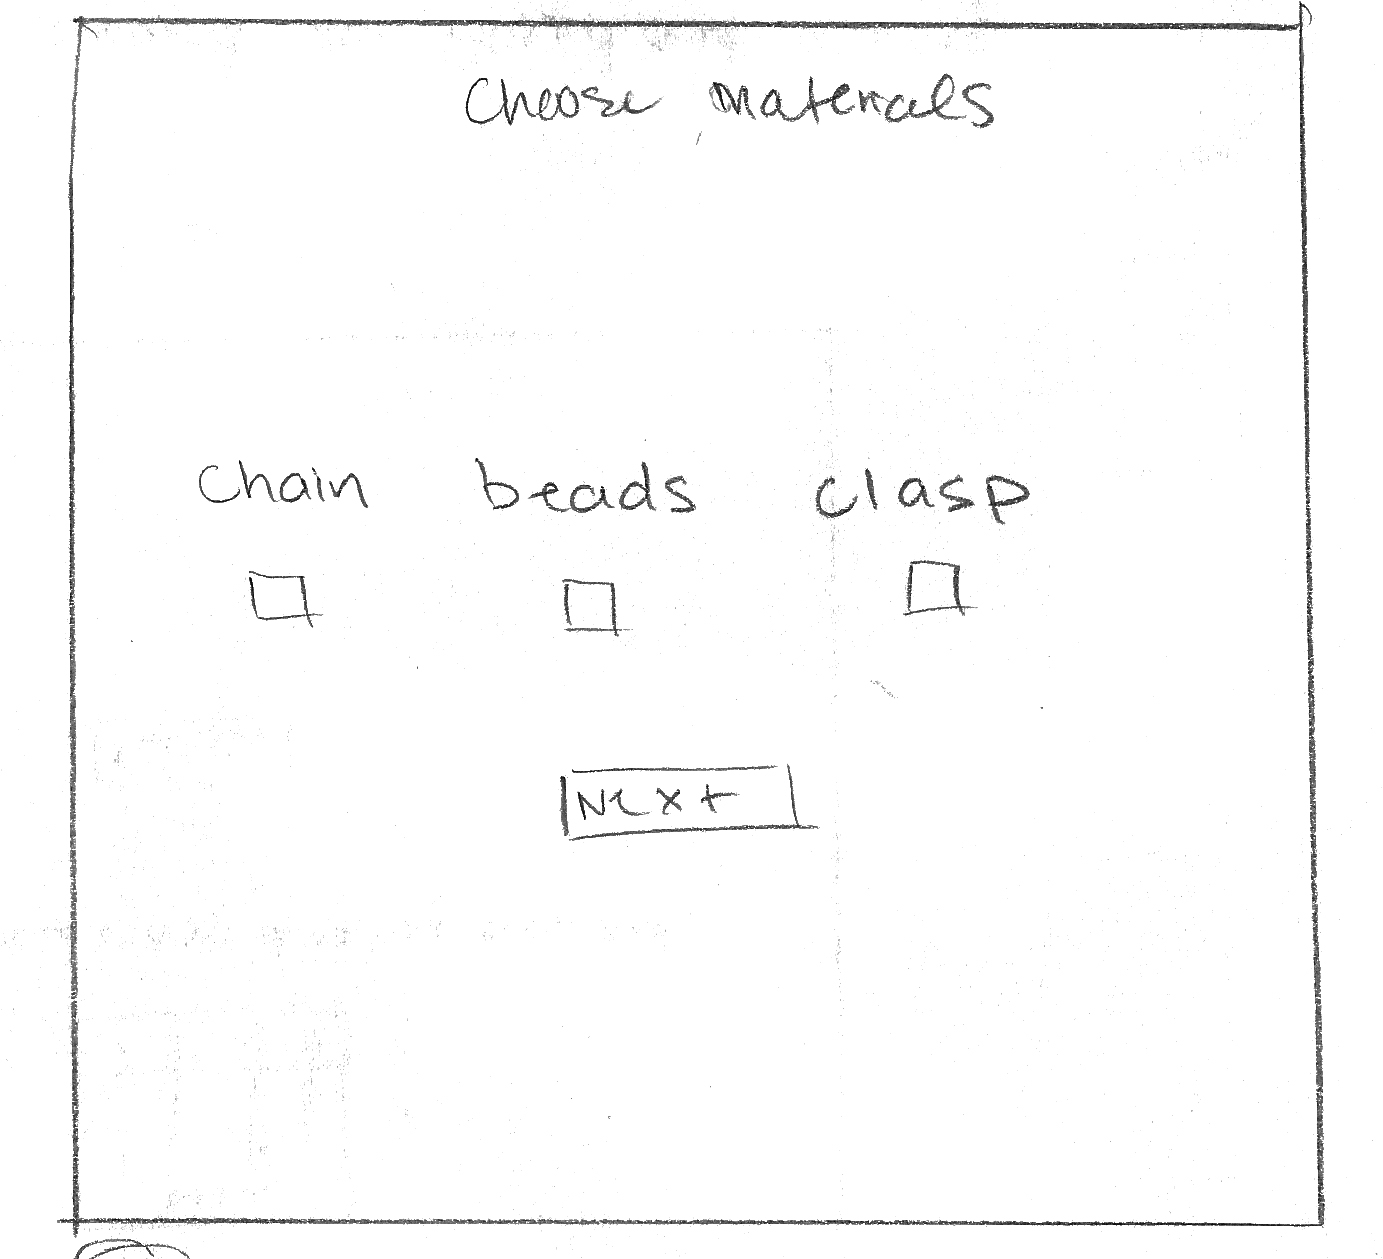 Choose materials
Chain beads clasp
Next